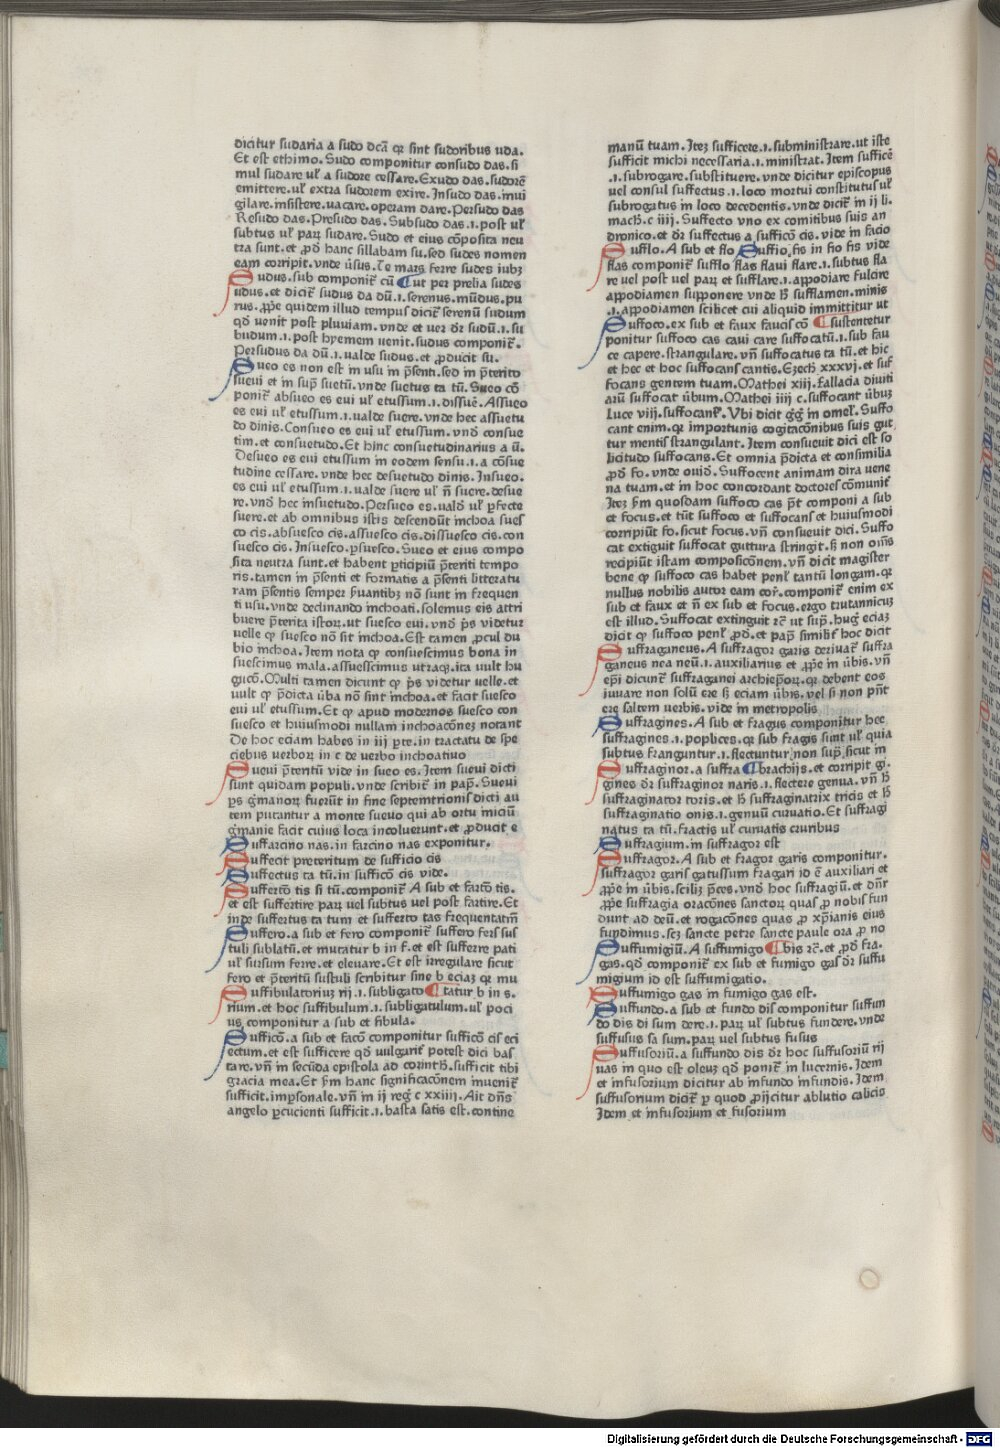 dicitur sudaria a sudo dcā qꝛ sint sudoribus uda.
Et est ethimo. Sudo componitur consudo das. si
mul sudare ul' a sudore cessare. Exudo das. sudorē
emittere. ul' extra sudorem exire. Insudo das. inui
gilare. insistere. uacare. operam dare. Persudo das
Resudo das. Presudo das. Subsudo das .i. post ul'
subtus ul' paꝝ sudare. Sudo et eius cōposita neu
tra sunt. et ꝓd' hanc sillabam su. sed sudes nomen
eam corripit. vnde ūsus. Te mars ferre sudes iubꝫ
Sudus. sub componit' cū ¶ ut per prelia sudes
udus. et dicit' sudus da dū .i. serenus. mūdus. pu
rus. ꝓpe quidem illud tempus dicit' serenū sudum
qd' uenit post pluuiam. vnde et uer dr̄ sudū .i. su
budum .i. post hyemem uenit. sudus componit'.
Persudus da dū .i. ualde sudus. et ꝓducit su.
Sueo es non est in usu in p̄senti. sed in p̄terito
sueui et in sup̄ suetū. vnde suetus ta tū. Sueo cō
ponit' absueo es eui ul' etussum .i. dissuē. Assueo
es eui ul' etussum .i. ualde suere. vnde hec assuetu
do dinis. Consueo es eui ul' etussum. vnd' consue
tim. et consuetudo. Et hinc consuetudinarius a ū.
Desueo es eui etussum in eodem sensu .i. a cōsue
tudine cessare. vnde hec desuetudo dinis. Insueo.
es eui ul' etussum .i. ualde suere ul' n̄ suere. desue
re. vnd' hec insuetudo. Persueo es. uald' ul' ꝑfecte
suere. et ab omnibus istis descendūt inchoa sues
co cis. absuesco cis. assuesco cis. dissuesco cis. con
suesco cis. Insuesco. ꝑsuesco. Sueo et eius compo
sita neutra sunt. et habent ꝑticipiū p̄teriti tempo
ris. tamen in p̄senti et formatis a p̄senti litteratu
ram p̄sentis semper ẜuantibꝫ nō sunt in frequen
ti usu. vnde declinando inchoati. solemus eis attri
buere p̄terita istoꝝ. ut suesco eui. vnd' p̄s videtur
uelle ꝙ suesco nō sit inchoa. Est tamen ꝓcul du
bio inchoa. Item nota ꝙ consuescimus bona in
suescimus mala. assuescimus utraqꝫ. ita uult hu
gucō. Multi tamen dicunt ꝙ p̄s videtur uelle. et
uult ꝙ p̄dicta ūba nō sint inchoa. et facit suesco
eui ul' etussum. Et ꝙ apud modernos suesco con
suesco et huiusmodi nullam inchoacōneꝫ notant
De hoc eciam habes in iij pte. in tractatu de spe
ciebus verboꝝ in c de verbo inchoatiuo
Sueui p̄teritū vide in sueo es. Item sueui dicti
sunt quidam populi. vnde scribit' in pap'. Sueui
ps g'manoꝝ fuerūt in fine septemtrionis dicti au
tem putantur a monte sueuo qui ab ortu iniciū
g'manie facit cuius loca incoluerunt. et ꝓducit e
Suffarcino nas. in farcino nas exponitur.
Suffecit preteritum de sufficio cis
Suffectus ta tū. in sufficō cis vide.
Suffercō tis si tū. componit' A sub et farcō tis.
et est suffertire paꝝ uel subtus uel post fartire. Et
inde suffertus ta tum et sufferto tas frequentatiū
Suffero. a sub et fero componit' suffero fers sus
tuli sublatū. et mutatur b in f. et est sufferre pati
ul' sursum ferre. et eleuare. Et est irregulare sicut
fero et p̄teritū sustuli scribitur sine b eciaꝫ qꝛ mu
Suffibulatoriuꝫ rij .i. subligato ¶ tatur b in s.
rium. et hoc suffibulum .i. subligatulum. ul' poci
us componitur a sub et fibula.
Sufficō. a sub et facō componitur sufficō cis eci
ectum. et est sufficere qd' uulgarit' potest dici bas
tare. vn̄ in secūda epistola ad corinth'. sufficit tibi
gracia mea. Et ẜm hanc significacōnem inuenit'
sufficit. impsonale. vn̄ in ij reg' c xxiiij. Ait dn̄s
angelo ꝑcucienti sufficit .i. basta satis est. contine
manū tuam. Iteꝫ sufficere .i. subministrare. ut iste
sufficit michi necessaria .i. ministrat. Item sufficē
.i. subrogare. substituere. vnde dicitur episcopus
uel consul suffectus .i. loco mortui constitutus ul'
subrogatus in loco decedentis. vnde dicit' in ij li.
mach. c iiij. Suffecto vno ex comitibus suis an
dronico. et dr̄ suffectus a sufficō cis. vide in facio
Sufflo. A sub et flo ¶ Suffio, fis in fio fis vide
flas componit' sufflo flas flaui flare .i. subtus fla
re uel post uel paꝝ et sufflare .i. appodiare fulcire
appodiamen supponere vnde h' sufflamen. minis
.i. appodiamen scilicet cui aliquid immittitur ut
Suffoco. ex sub et faux faucis cō ¶ sustentetur
ponitur suffoco cas caui care suffocatū .i. sub fau
ce capere. strangulare. vn̄ suffocatus ta tū. et hic
et hec et hoc suffocans cantis. Ezech' xxxvj. et suf
focans gentem tuam. Mathei xiij. fallacia diuiti
arū suffocat ūbum. Mathei iiij c. suffocant ūbuꝫ
Luce viij. suffocant'. Vbi dicit g'g' in omel'. Suffo
cant enim. qꝛ importunis cogitacōnibus suis gut
tur mentis strangulant. Item consueuit dici est so
licitudo suffocans. Et omnia p̄dicta et consimilia
ꝓd' fo. vnde ouid'. Suffocent animam dira uene
na tuam. et in hoc concordant doctores cōmunit'
Iteꝫ ẜm quosdam suffoco cas p̄t componi a sub
et focus. et tūc suffoco et suffocans et huiusmodi
corripiūt fo. sicut focus. vn̄ consueuit dici. Suffo
cat extiguit suffocat guttura stringit. ẜ non oīn̄s
recipiūt istam composicōnem. vn̄ dicit magister
bene ꝙ suffoco cas habet penl' tantū longam. qꝛ
nullus nobilis autor eam cor'. componit' enim ex
sub et faux et n̄ ex sub et focus. ergo trutannicuꝫ
est illud. Suffocat extinguit rc̄ ut sup̄. hug' eciaꝫ
dicit ꝙ suffoco penl' ꝓd'. et pap' similit' hoc dicit
Suffraganeus. A suffragor garis deriuat' suffra
ganeus nea neū .i. auxiliarius et ꝓpe in ūbis. vn̄
ep̄i dicunt' suffraganei archiep̄oꝝ. qꝛ debent eos
iuuare non solū ere ẜ eciam ūbis. vel si non pn̄t
ere saltem uerbis. vide in metropolis
Suffragines. A sub et fragus componitur hec
suffragines .i. poplices. qꝛ sub fragis sunt ul' quia
subtus franguntur .i. flectuntur non sup̄. sicut in
Suffraginor. a suffra ¶ brachijs. et corripit gi.
gines dr̄ suffraginor naris .i. flectere genua. vn̄ h'
suffraginator toris. et h' suffraginatrix tricis et h'
suffraginatio onis .i. genuū curuatio. Et suffragi
natus ta tū. fractis ul' curuatis cruribus
Suffragium. in suffragor est
Suffragor. A sub et fragor garis componitur.
suffragor garis gatussum fragari id ē auxiliari et
ꝓpe in ūbis. scilꝫ p̄ces. vnd' hoc suffragiū. et dn̄r
ꝓpe suffragia oracōnes sanctoꝝ quas ꝓ nobis fun
dunt ad deū. et rogacōnes quas ꝓ xp̄ianis eius
fundimus. scꝫ sancte petre sancte paule ora ꝓ no
Suffumigiū. A suffumigo ¶ bis rc̄. et ꝓd' fra.
gas. qd' componit' ex sub et fumigo gas dr̄ suffu
migium id est suffumigatio.
Suffumigo gas in fumigo gas est.
Suffundo. a sub et fundo dis componitur suffun
do dis di sum dere .i. paꝝ ul' subtus fundere. vnde
suffusus sa sum. paꝝ uel subtus fusus
Suffusoriū. a suffundo dis dr̄ hoc suffusoriū rij
uas in quo est oleuꝫ qd' ponit' in lucernis. Idem
et infusorium dicitur ab infundo infundis. Idem
suffusorium dicit' ꝑ quod ꝓijcitur ablutio calicis
Idem et infusorium et fusorium
Digitalisierung gefördert durch die Deutsche Forschungsgemeinschaft - DFG